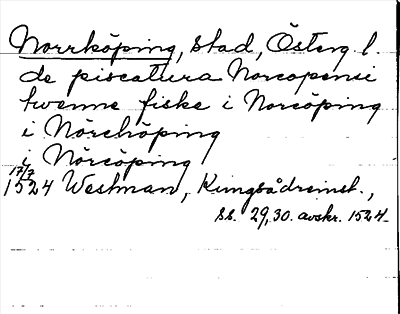 Norrköping, stad, Österg. l.
de piscatura Norcopensi
twenne fiske i Norcöping
i Nörchöping
i Nörcöping
17/7
1524 Westman, Kungsådreinst.,
ss. 29,30. avskr. 1524.